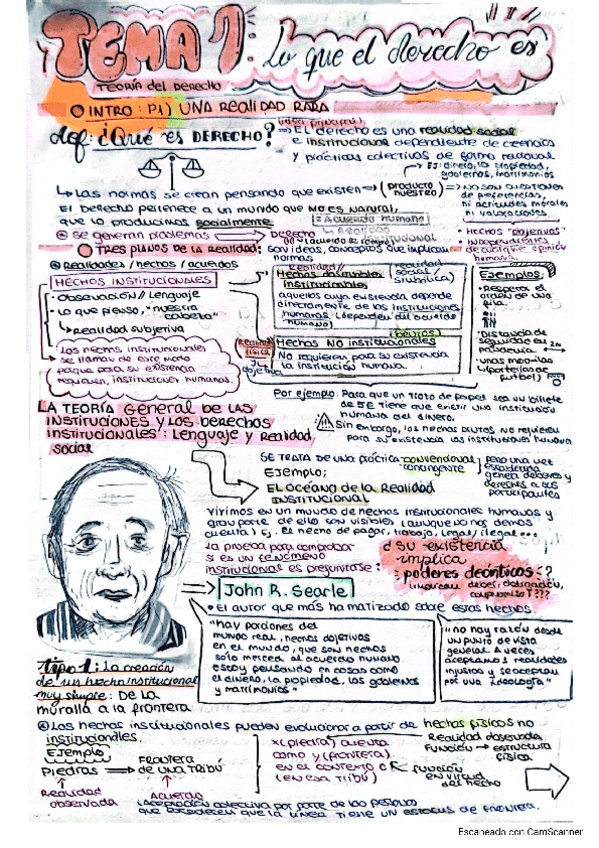 TEMA 1: Lo que el derecho es
TEORÍA del DERECHO
INTRO: P1) UNA REALIDAD RARA
def: ¿Qué es DERECHO?
⇒ EL derecho es una realidad social
e institucional dependiente de creencias
y prácticas colectivas de forma
Ej: dinero, la propiedad,
gobiernos, matrimonios
↳ Las normas se crean pensando que existen ⇒ (producto nuestro)
→ NO son cuestiones
de preferencias,
ni actitudes morales
ni valoraciones
El derecho pertenece a un mundo que no es natural,
que lo producimos socialmente
= Acuerdo humano
Realidad institucional
• Hechos "objetivos"
independientes
de cualquier opinión
humana.
se generan problemas → Derecho
TRES PLANOS DE LA REALIDAD: son ideas, conceptos que implican
normas
Realidades / hechos / acuerdos
HECHOS INSTITUCIONALES
• Observación // Lenguaje
• Lo que pienso, "nuestra
cabeza"
↳ Realidad subjetiva
Los hechos institucionales
se llaman de ese modo
porque para su existencia
requieren, instituciones humanas.
Realidad
social /
simbólica)
institucionales
aquellos cuya existencia depende
directamente de las instituciones
humanas (dependen del acuerdo
humano)
Realidad
física
objetivos
(brutos)
Hechos NO institucionales
No requieren para su existencia
la institución humana.
Ejemplos:
• Respetar el
orden de una
fila
• Distancia de
seguridad en
pandemia
• unas mochilas
(porterías de
futbol)
Por ejemplo: Para que un trozo de papel sea un billete
de 5€ tiene que existir una institución
humana del dinero.
Sin embargo, los hechos brutos no requieren
para su existencia las instituciones humana
LA TEORÍA General DE LAS
INSTITUCIONES Y LOS DERECHOS
institucionales: Lenguaje y Realidad
social
SE TRATA DE UNA PRÁCTICA convencional
contingente
, pero una vez
establecida
genera deberes y
derechos a los
participantes
Ejemplo;
EL OCÉANO DE LA REALIDAD
INSTITUCIONAL
Vivimos en un mundo de hechos institucionales humanos y
gran parte de ello son visibles (aunque no nos demos
cuenta) Ej. El hecho de pagar, trabajo, legal/ilegal...
La prueba para comprobar
si es un fenómeno
institucional es preguntarse:
¿Su existencia
implica
poderes deónticos?
implican deber, obligación,
John R. Searle
• El autor que más ha matizado sobre estos hechos
"hay porciones del
mundo real, hechos objetivos
en el mundo, que son hechos
sólo merced al acuerdo humano
estoy pensando en cosas como
el dinero, la propiedad, los gobiernos
y matrimonios"
"no hay razón desde
un punto de vista
general. A veces
aceptamos realidades
injustas y se aceptan
por una ideología"
tipo 1: La creación
de un hecho institucional
muy simple: De la
muralla a la frontera
Los hechos institucionales pueden evolucionar a partir de hechos físicos no
institucionales.
Ejemplo
Piedras ⇒ Frontera
de una tribu
Realidad
observada
Acuerdo
X (piedra) cuenta
como Y (frontera)
en el contexto C
(en esa tribu)
Realidad observada
Función → estructura
física
función
en virtud
del hecho
(Aceptación colectiva por parte de las personas
que establecen que la línea tiene un estatus de frontera.
Escaneado con CamScanner